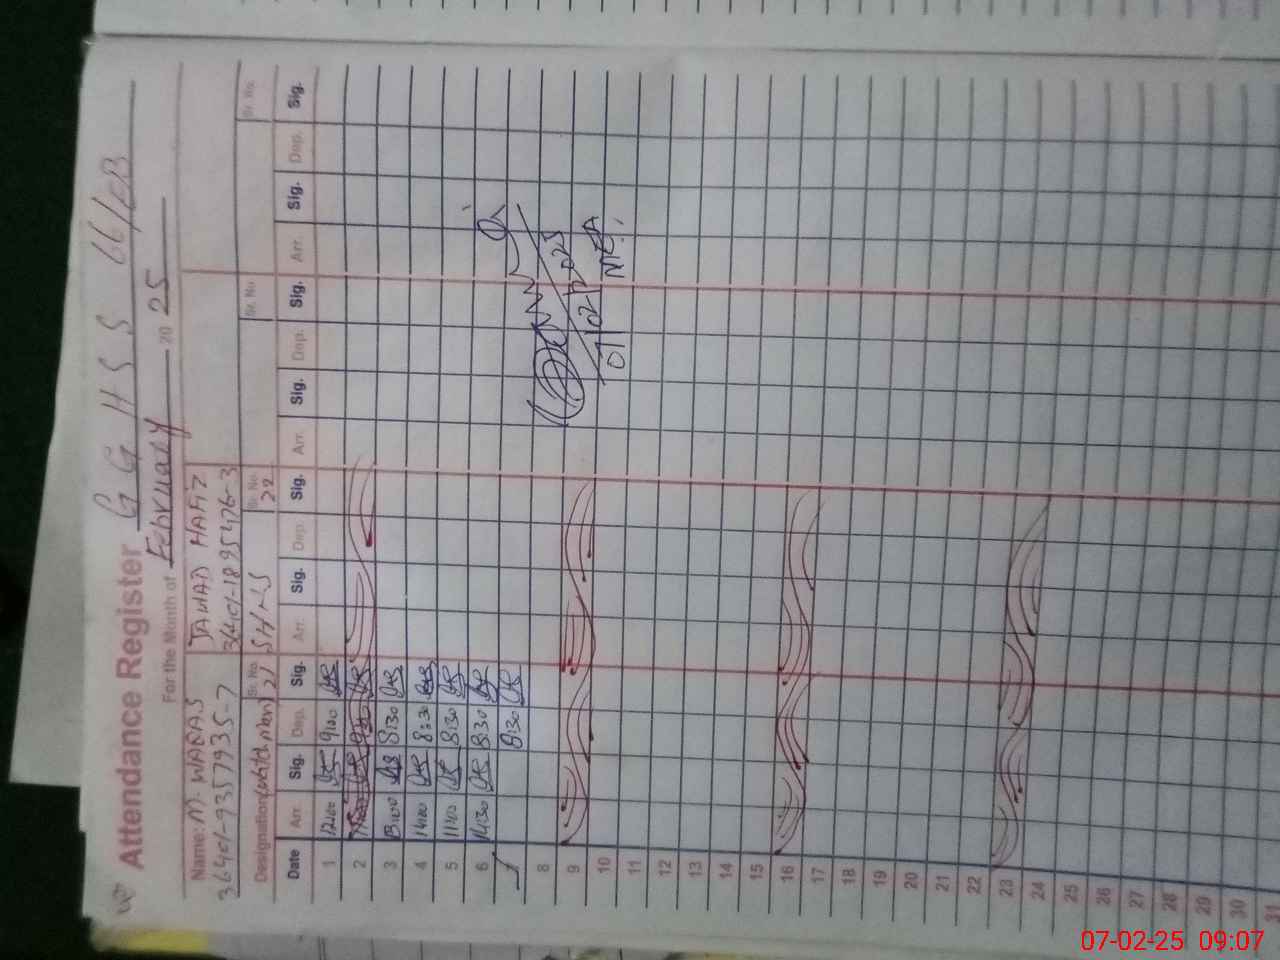 Attendance Register G G H S S 66/EB
For the Month of February 20 25
Name: M. WARAS JAWAD HAFIZ
36401-9357935-7 36401-1895476-3
Designation Watchman Sr. No. 21 SHNS Sr. No. 22 Sr. No. Sr. No.
Date Arr. Sig. Dep. Sig. Arr. Sig. Dep. Sig. Arr. Sig. Dep. Sig. Arr. Sig. Dep. Sig.
1 12:00 9:00
2
3 13:00 8:30
4 14:00 8:30
5 11:00 8:30
6 14:30 8:30
8:30
8
9
10
11
12
13
14
15
16
17
18
19
20
21
22
23
24
25
26
27
28
29
30
31
07/02/2025
MEA
07-02-25 09:07